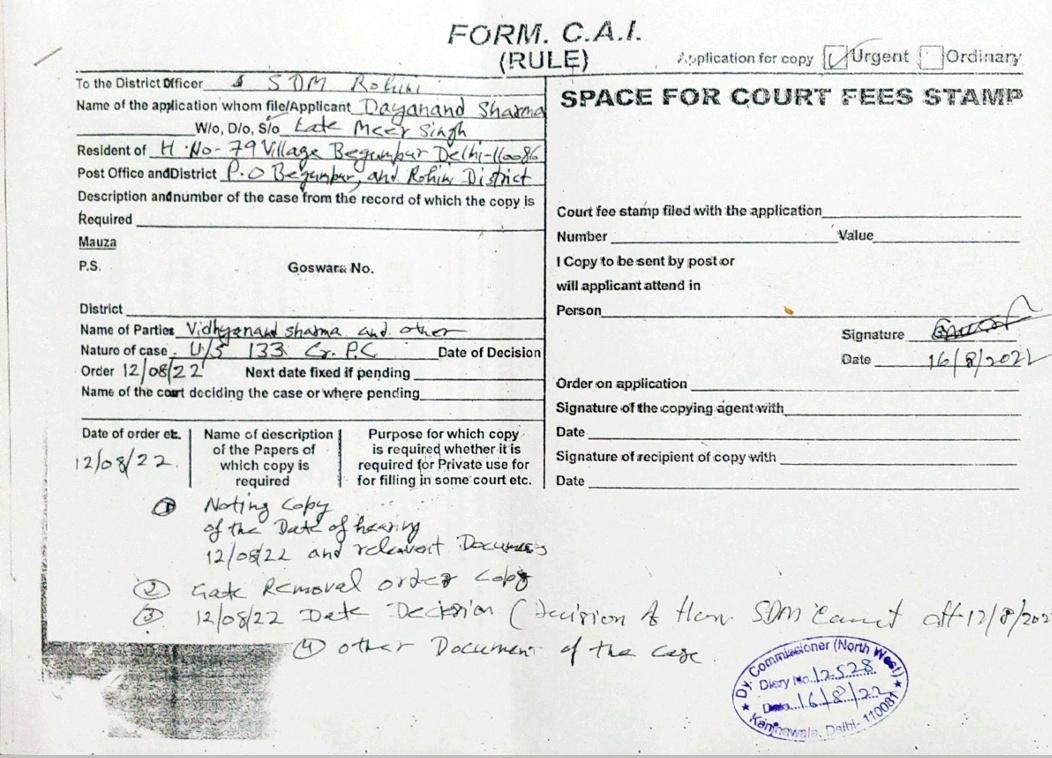 FORM. C.A.I.
(RULE)
Application for copy Urgent Ordinary
To the District Officer SDM Rohini
Name of the application whom file/Applicant Dayanand Sharma
W/o, D/o, S/o Late Meer Singh
Resident of H.No-79 Village Begumpur Delhi-110086
Post Office and District P.O Begumpur, and Rohini District
Description and number of the case from the record of which the copy is
Required
Mauza
P.S. Goswara No.
District
Name of Parties Vidhyanand sharma and other
Nature of case U/S 133 Cr. P.C Date of Decision
Order 12/08/22 Next date fixed if pending
Name of the court deciding the case or where pending
SPACE FOR COURT FEES STAMP
Court fee stamp filed with the application
Number Value
I Copy to be sent by post or
will applicant attend in
Person
Signature
Date 16/8/2022
Order on application
Signature of the copying agent with
Date
Signature of recipient of copy with
Date
Date of order etc.
12/08/22.
Name of description
of the Papers of
which copy is
required
Purpose for which copy
is required whether it is
required for Private use for
for filling in some court etc.
① Noting Copy
of the Date of hearing
12/08/22 and relevant Documes
② Gate Removal order Copy
③ 12/08/22 Date Decision (Decision of Hon. SDM Court 12/8/202
④ other Document of the case.
Dy. Commissioner (North West)
Diary No. 12528
Date 16/8/22
Kanjhawala, Delhi-110081